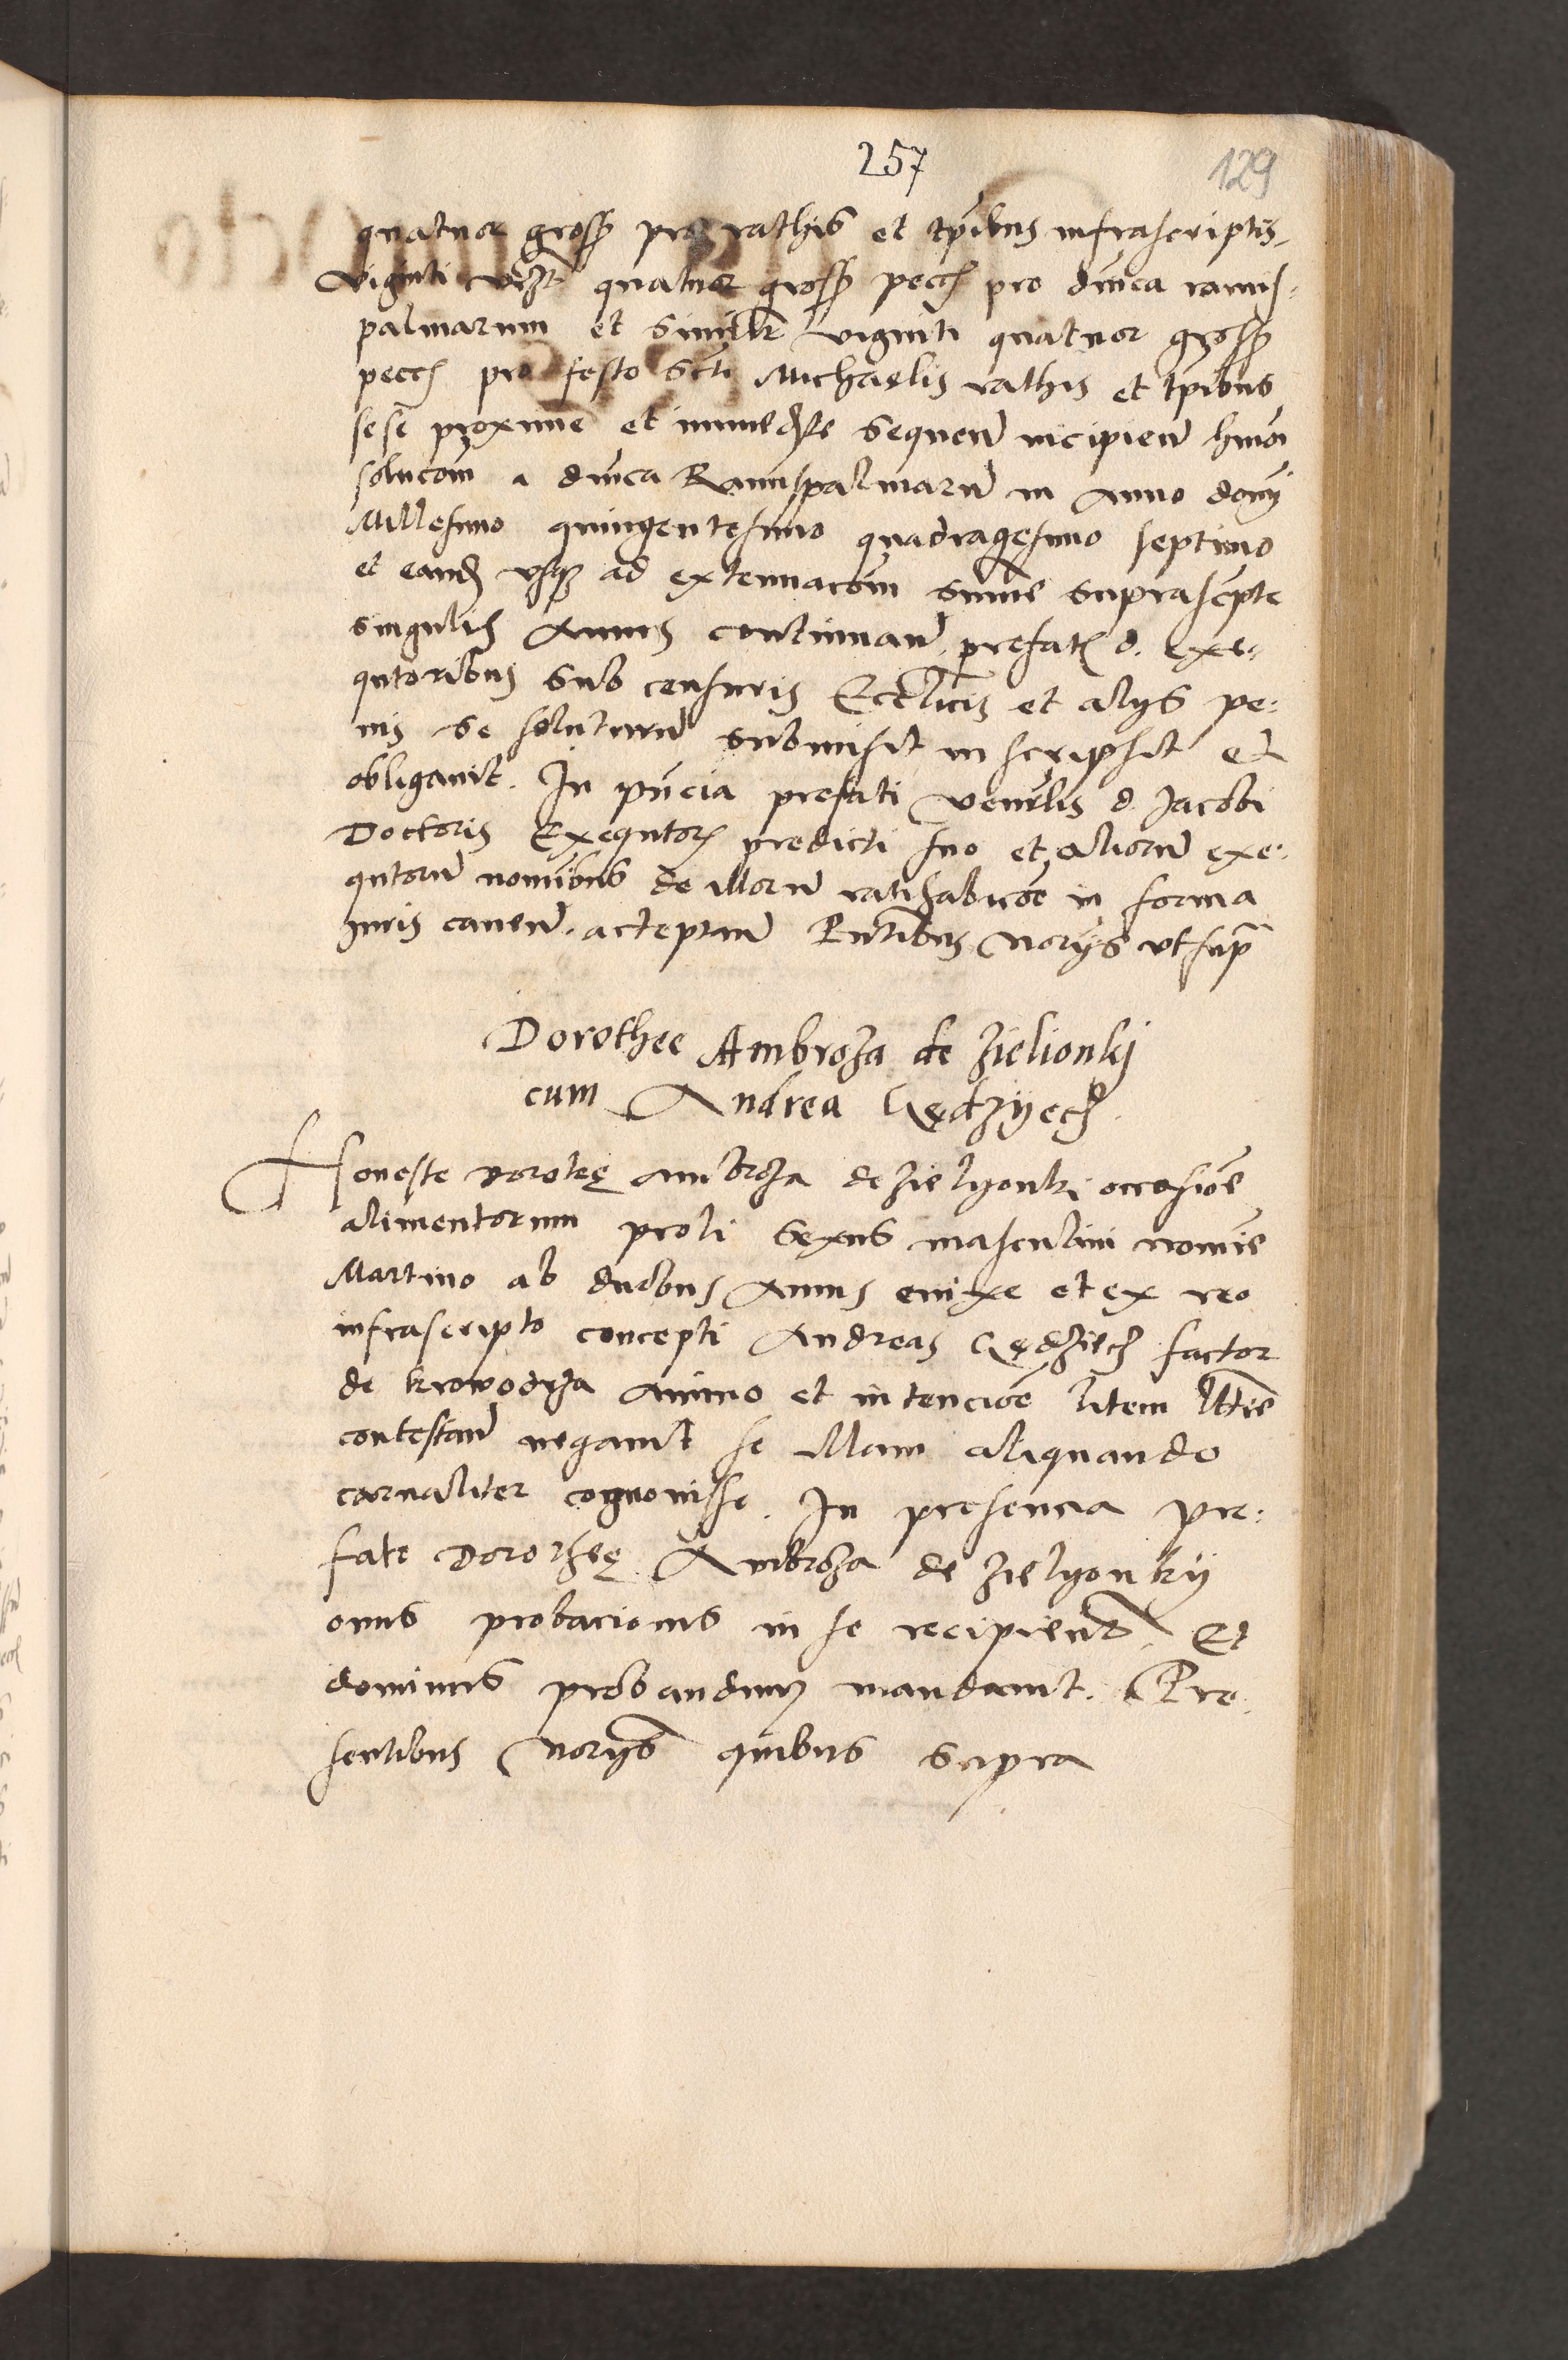 257
129
quatuor gross pro rathis et tpibus infrascriptis
viginti vizt quatuor gross pecc pro dnica ramis
palmarum et similr viginti quatuor gross
pecc pro festo Scti Michaelis rathis et tpibus
sese proxime et immediate sequen incipien hmoi
solucom a dnica Ramispalmaru in Anno domj
Millesimo quingentesimo quadragesimo septimo
et eand usque ad extenuacom summe suprascripte
singulis Annis continuan prefat d. Exe-
qutoribus sub censuris Ecclicis et alijs pe:
nis se soluturu submisit inscripsit et
obligavit. In pncia prefati venrlis d. Jacobi
Doctoris Exequtor predicti suo et aliorum exe:
qutoru nomibus de illoru ratihabicoe in forma
Juris caven. acceptan Pntibus norijs ut supra
Dorothee Ambroza de Zielionkj
cum Andrea Gędzÿech
Honeste Dorotheę Ambroza de Zielyonki occasioe
alimentorum proli sexus masculini nomine
Martino ab duobus Annis enixe et ex reo
infrascripto concepti Andreas Gędziech factor
de Krowodrza animo et intencioe litem
contestan negavit se illam aliquando
carnaliter cognovisse. In presencia pre:
fate Dorotheę Ambroza de Zielyonkÿ
onus probacionis in se recipient. Et
dominus probandum mandavit. Pre
sentibus norijs quibus supra